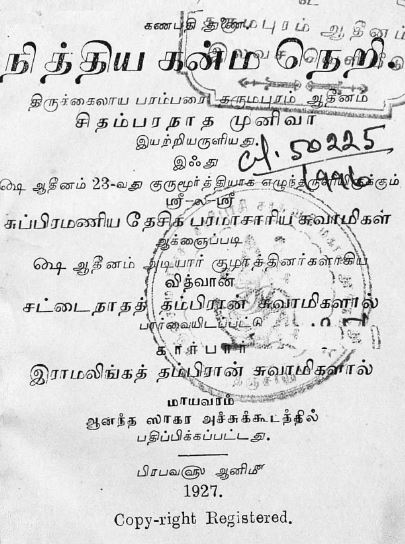 கணபதி துணை.
நித்திய கன்ம நெறி.
திருக்கைலாய பரம்பரை தருமபுரம் ஆதீனம்
சிதம்பரநாத முனிவர்
இயற்றியருளியது
இஃது
௸ ஆதீனம் 23-வது குருமூர்த்தியாக எழுந்தருளியிருக்கும்
ஸ்ரீ-ல-ஸ்ரீ
சுப்பிரமணிய தேசிக பரமாசாரிய சுவாமிகள்
ஆக்ஞைப்படி
௸ ஆதீனம் அடியார் குழாத்தினர்களாகிய
வித்வான்
சட்டைநாதத் தம்பிரான் சுவாமிகளால்
பார்வையிடப்பட்டு
கார்பார்
இராமலிங்கத் தம்பிரான் சுவாமிகளால்
மாயவரம்
ஆனந்த ஸாகர அச்சுக்கூடத்தில்
பதிப்பிக்கப்பட்டது.
பிரபவ௵ ஆனி௴
1927.
Copy-right Registered.
தருமபுரம் ஆதீனம்
50225